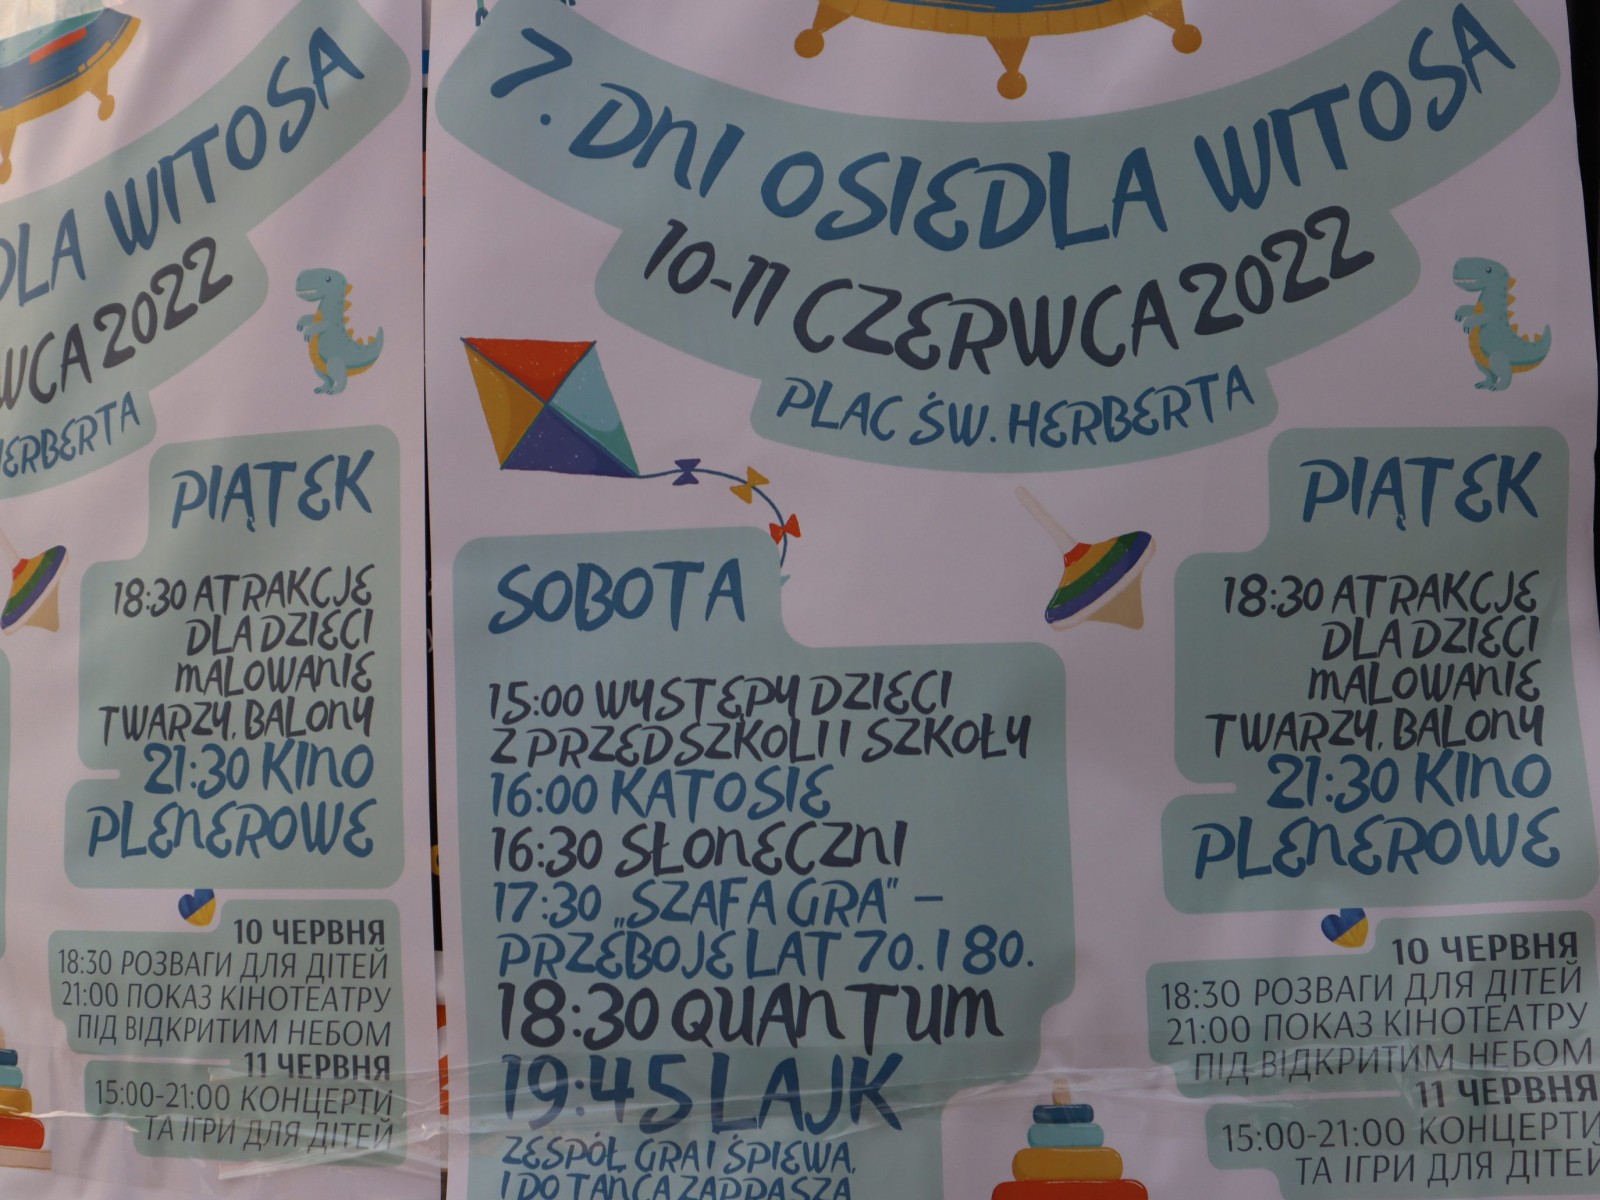 DLA WITOSA
WCA 2022
HERBERTA
PIĄTEK
18:30 ATRAKCJE
DLA DZIECI
MALOWANIE
TWARZY, BALONY
21:30 KINO
PLENEROWE
10 ЧЕРВНЯ
18:30 РОЗВАГИ ДЛЯ ДІТЕЙ
21:00 ПОКАЗ КІНОТЕАТРУ
ПІД ВІДКРИТИМ НЕБОМ
11 ЧЕРВНЯ
15:00-21:00 КОНЦЕРТИ
ТА ІГРИ ДЛЯ ДІТЕЙ
7. DNI OSIEDLA WITOSA
10-11 CZERWCA 2022
PLAC ŚW. HERBERTA
SOBOTA
15:00 WYSTĘPY DZIECI
Z PRZEDSZKOLI I SZKOŁY
16:00 KATOSIE
16:30 SŁONECZNI
17:30 „SZAFA GRA” –
PRZEBOJE LAT 70. I 80.
18:30 QUANTUM
19:45 LAJK
ZESPÓŁ GRA I ŚPIEWA,
I DO TAŃCA ZAPRASZA
PIĄTEK
18:30 ATRAKCJE
DLA DZIECI
MALOWANIE
TWARZY, BALONY
21:30 KINO
PLENEROWE
10 ЧЕРВНЯ
18:30 РОЗВАГИ ДЛЯ ДІТЕЙ
21:00 ПОКАЗ КІНОТЕАТРУ
ПІД ВІДКРИТИМ НЕБОМ
11 ЧЕРВНЯ
15:00-21:00 КОНЦЕРТИ
ТА ІГРИ ДЛЯ ДІТЕЙ